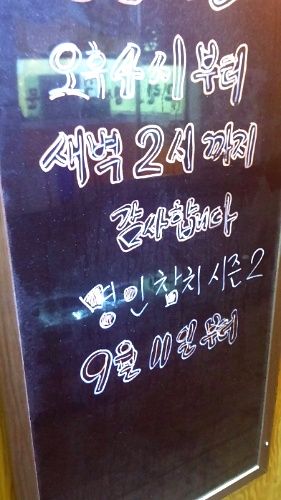 오후 4시 부터
새벽 2시 까지
감사합니다
명인참치 시즌2
9월 11일 부터